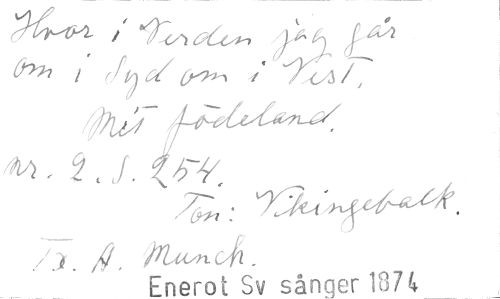 Hvor i Verden jag går
om i Syd om i Vest.
Mit födeland.
nr. 2. S. 254.
Ton: Vikingebalk.
Tx. A. Munch.
Enerot Sv sånger 1874